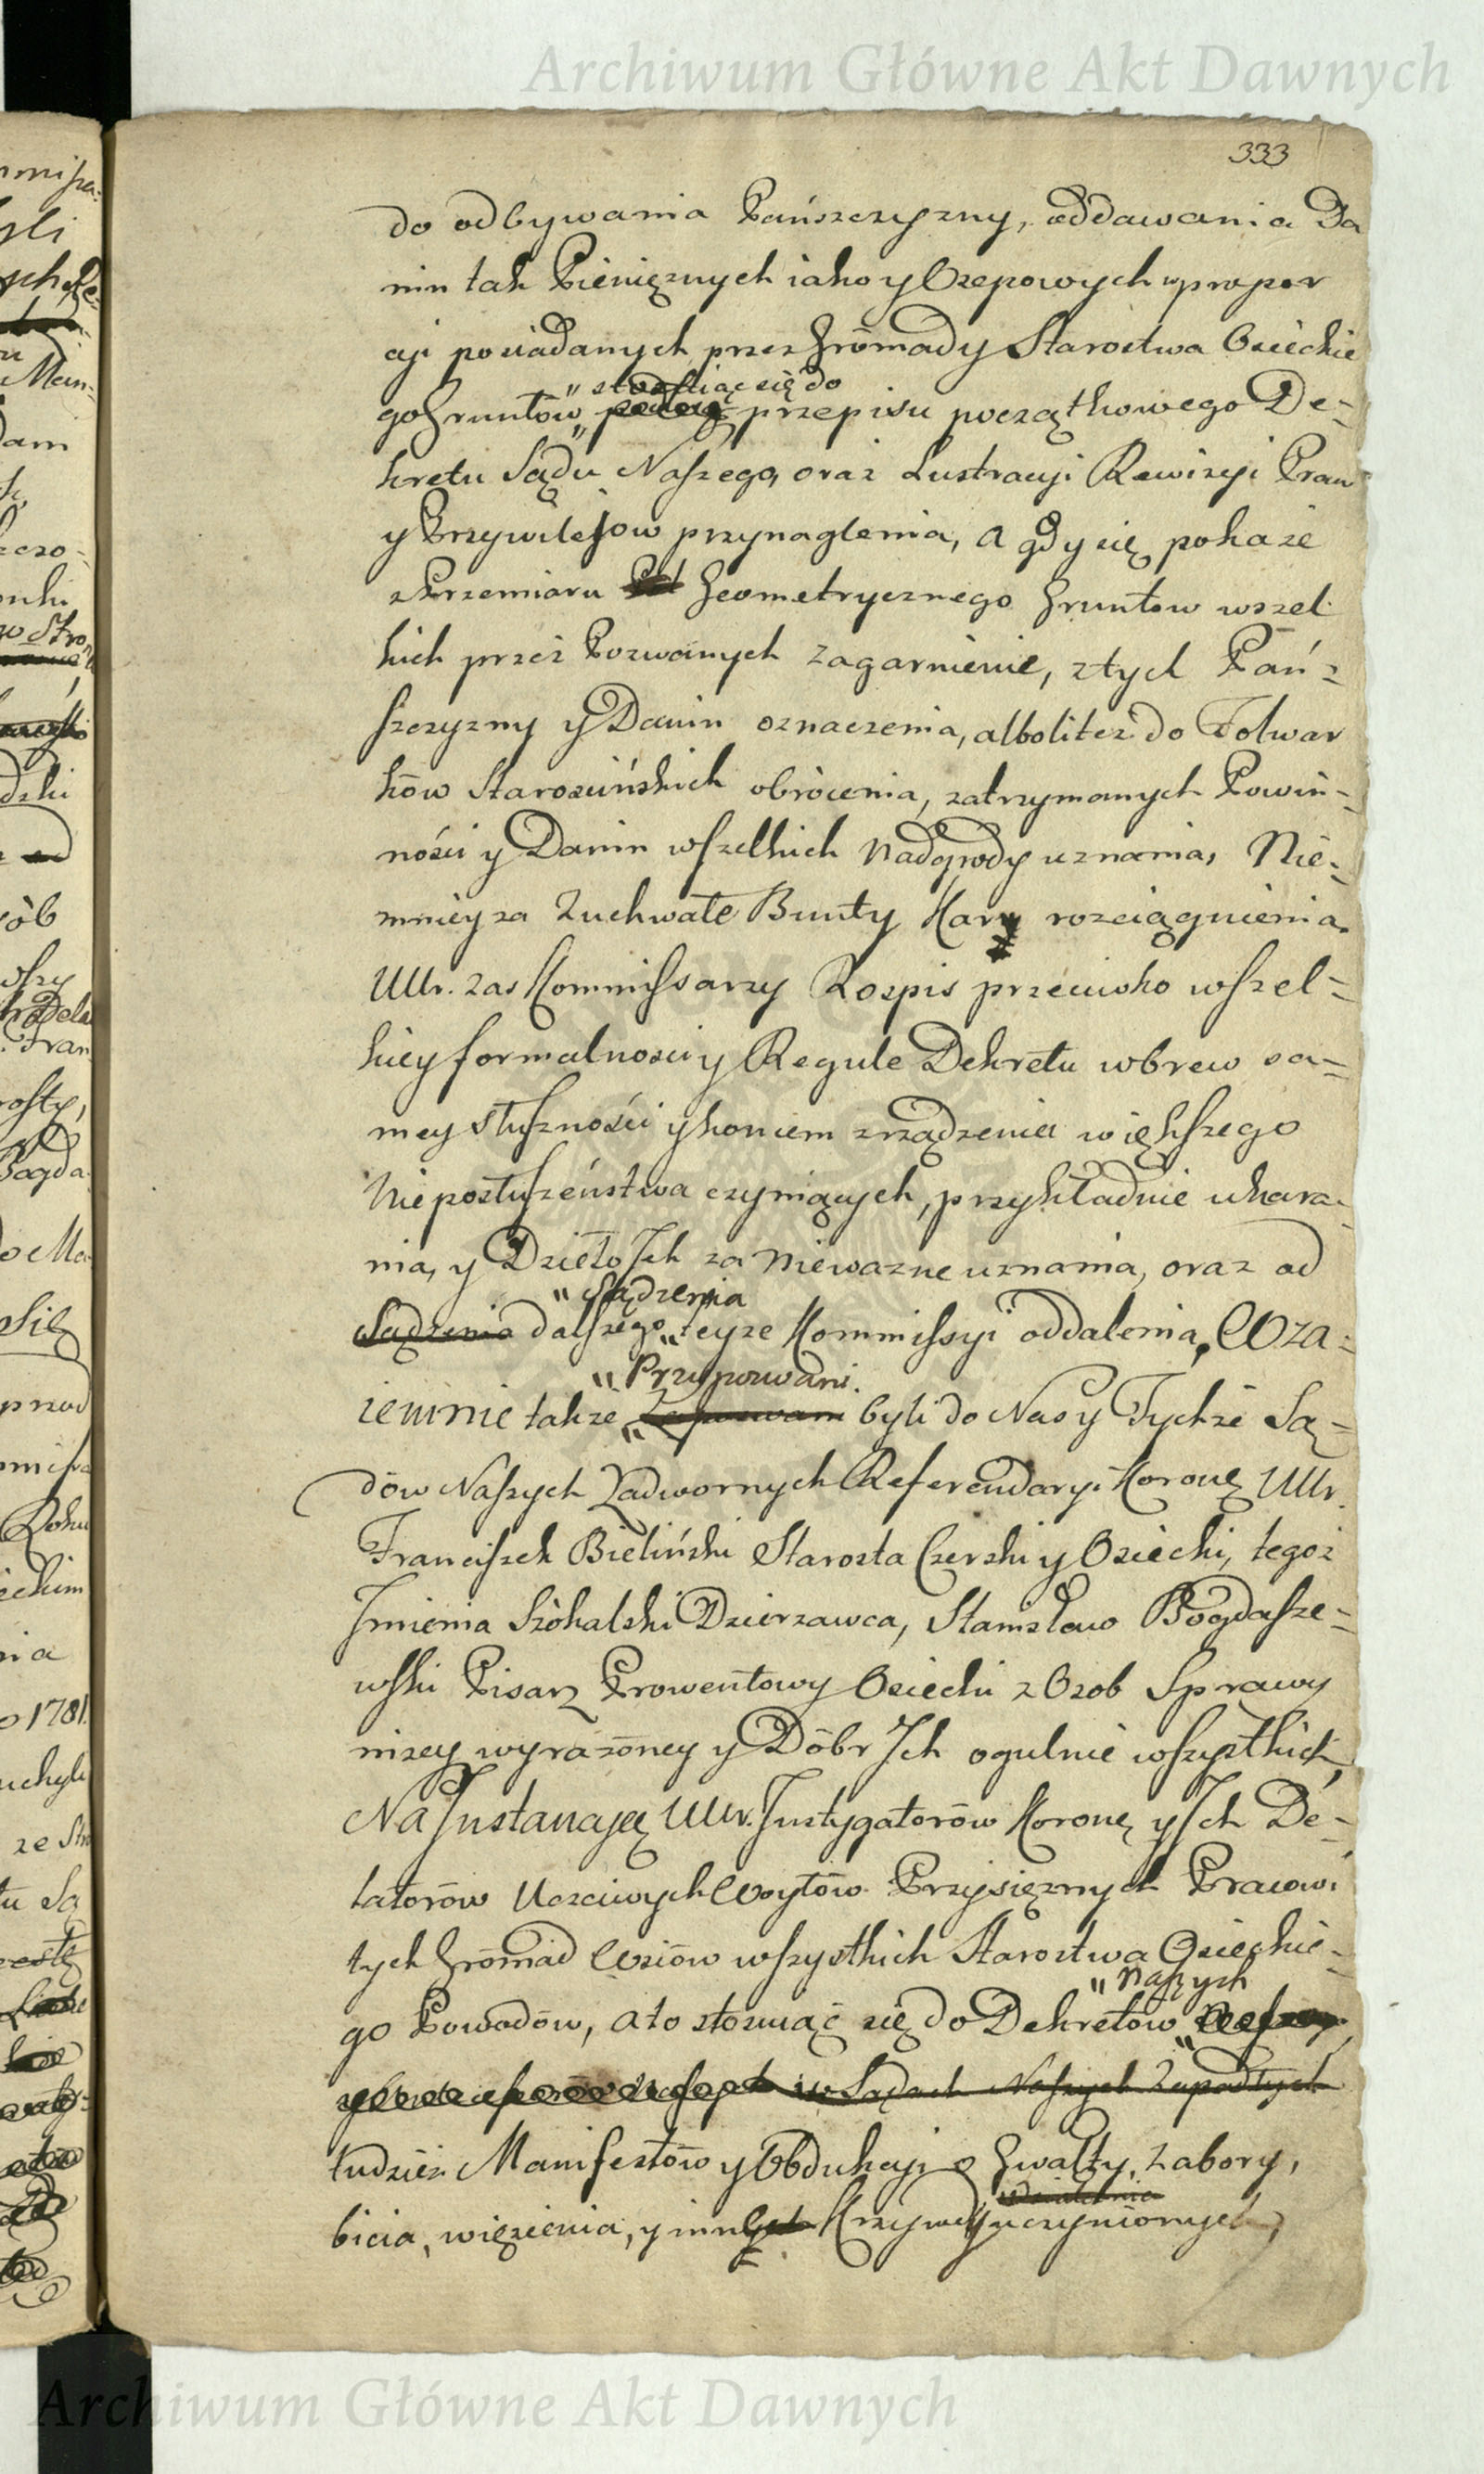 Archiwum Główne Akt Dawnych
333
do odbywania Pańszczyzny, oddawania Da
nin tak Pieniężnych iako y Osepowych w propor
cji posiadanych przez Gromady Starostwa Osieckie
stosuiąc się do
go Gruntów przepisu początkowego De-
kretu Sądu Naszego, oraz Lustracyi Rewizyi Praw
y Przywilejow przynaglenia, a gdy się pokaże
z Przemiaru Geometrycznego Gruntow wszel
kich przez Pozwanych zagarnienie, z tych Pań-
szczyzny y Danin oznaczenia, albo li też do Folwar
ków Starościńskich obrócenia, zatrzymanych Powin-
ności y Danin wszelkich nadgrody uznania, Nie-
mniey za Zuchwałe Bunty Kary rozciągnienia.
Ur. zas Kommissarzy Rozpis przeciwko wszel-
kiey formalnosci y Regule Dekretu wbrew sa-
mey słuszności y koniem zrządzenia większego
Nieposłuszeństwa czyniących, przykładnie ukara-
nia, y Dzieło Ich za nieważne uznania, oraz od
Sądzenia
Sądzenia dalszego teyże Kommissyi oddalenia, Wza-
Przypozwani.
iemnie także Zapozwani byli do Nas y Tychże Są-
dów Naszych Zadwornych Referendaryi Koronę Ur.
Franciszek Bieliński Starosta Czerski y Osiecki, tegoż
Imienia Szokalski Dzierzawca, Stanisław Bogdasze-
wski Pisarz Prowentowy Osiecki z Osob Sprawy
niżey wyrażoney y Dóbr Ich ogulnie wszystkich,
Na Instancyą Ur. Instygatorów Koronę y Ich De-
latorów Uczciwych Woytów Przysiężnych Pracowi
tych Gromad Wsiów wszystkich Starostwa Osieckie-
Naszych
go Powodów, a to stosuiąc się do Dekretów
w Sądach Naszych Zapadłych
tudzież Manifestów y Obdukcyi o Gwałty, Zabory,
bicia, więzienia, y inne Krzywdy uczynionych,
Archiwum Główne Akt Dawnych